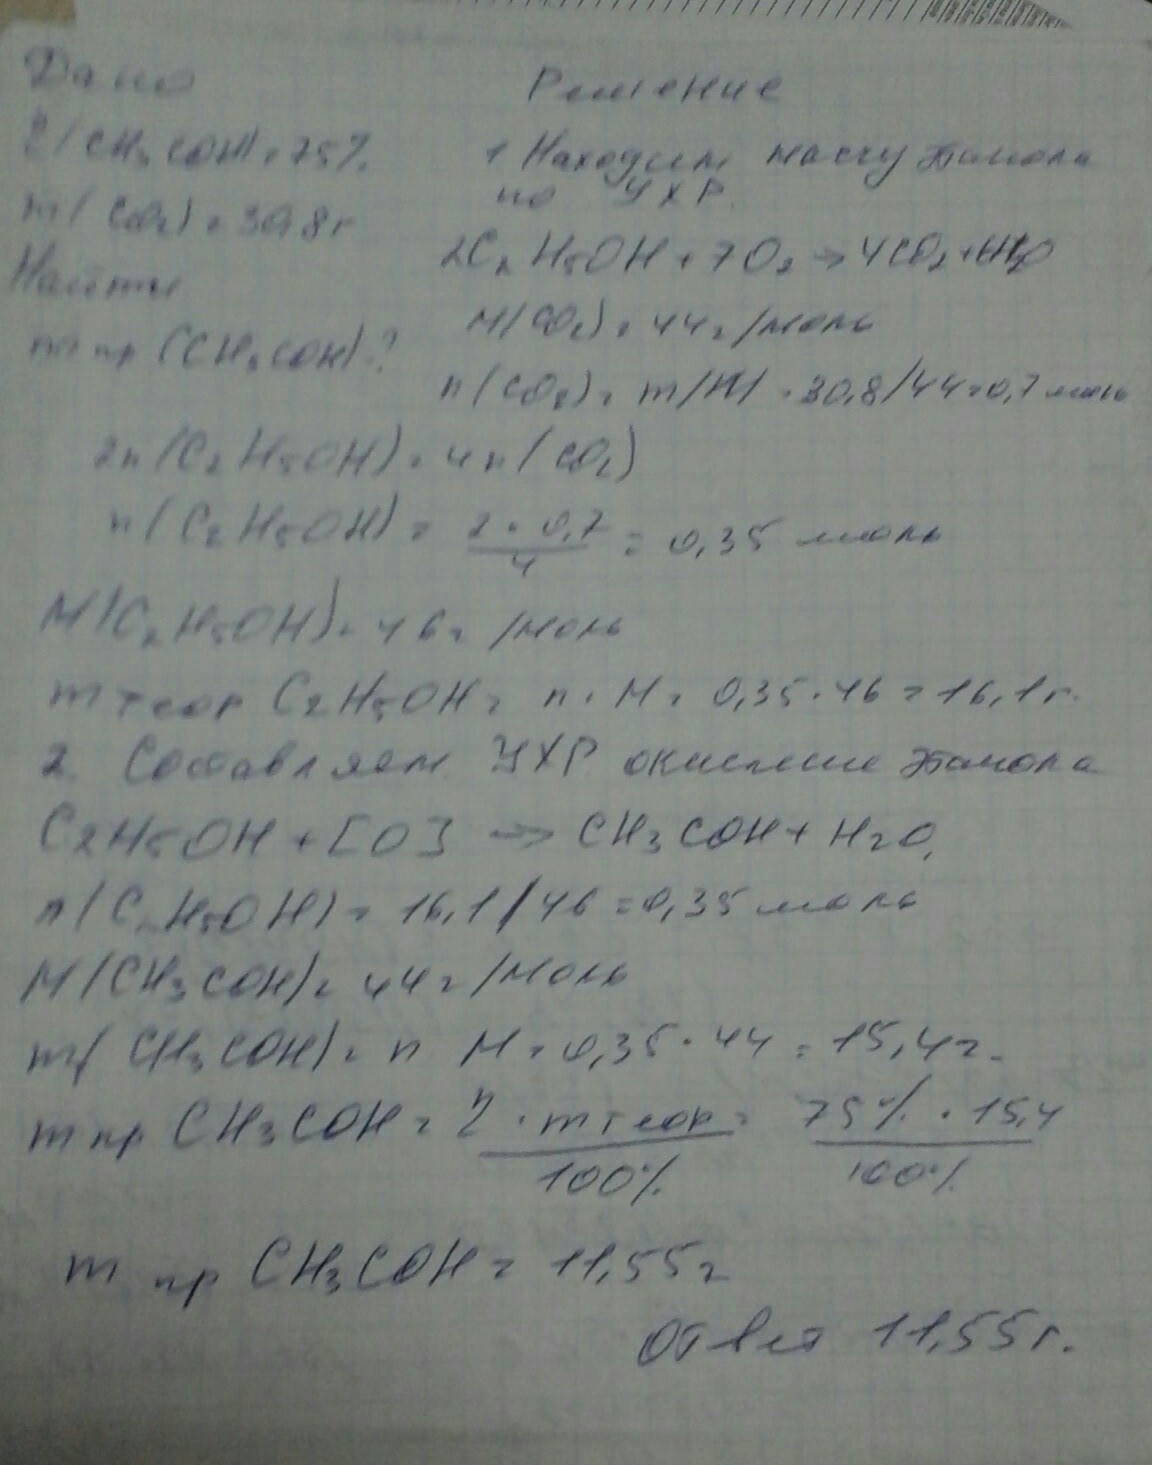 Дано
η(CH3COH) = 75%.
m(CO2) = 30,8 г
Найти
m пр (CH3COH)?
Решение
1 Находим массу этанола
по УХР.
2C2H5OH + 7O2 → 4CO2 + 6H2O
M(CO2) = 44 г/моль
n(CO2) = m/M = 30,8/44 = 0,7 моль
2n(C2H5OH) = 4n(CO2)
n(C2H5OH) = 2 · 0,7 / 4 = 0,35 моль
M(C2H5OH) = 46 г/моль
m теор C2H5OH = n · M = 0,35 · 46 = 16,1 г.
2. Составляем УХР окисление этанола
C2H5OH + [O] → CH3COH + H2O,
n(C2H5OH) = 16,1/46 = 0,35 моль
M(CH3COH) = 44 г/моль
m(CH3COH) = n M = 0,35 · 44 = 15,4 г.
m пр CH3COH = η · m теор / 100% = 75% · 15,4 / 100%
m пр CH3COH = 11,55 г
Ответ 11,55 г.